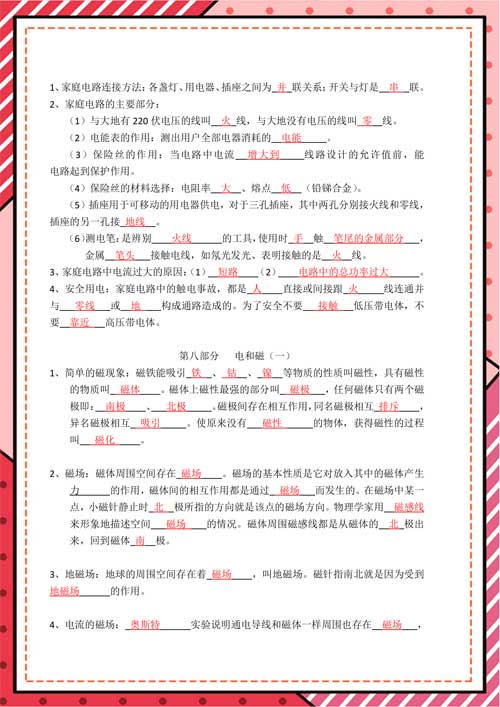 1、家庭电路连接方法：各盏灯、用电器、插座之间为 并 联关系；开关与灯是 串 联。
2、家庭电路的主要部分：
（1）与大地有220伏电压的线叫 火 线，与大地没有电压的线叫 零 线。
（2）电能表的作用：测出用户全部电器消耗的 电能 。
（3）保险丝的作用：当电路中电流 增大到 线路设计的允许值前，能
电路起到保护作用。
（4）保险丝的材料选择：电阻率 大 、熔点 低 （铅锑合金）。
（5）插座用于可移动的用电器供电，对于三孔插座，其中两孔分别接火线和零线，
插座的另一孔接 地线 。
（6）测电笔：是辨别 火线 的工具，使用时 手 触 笔尾的金属部分 ，
金属 笔头 接触电线，如氖光发光、表明接触的是 火 线。
3、家庭电路中电流过大的原因：（1） 短路 （2） 电路中的总功率过大 。
4、安全用电：家庭电路中的触电事故，都是 人 直接或间接跟 火 线连通并
与 零线 或 地 构成通路造成的。为了安全不要 接触 低压带电体，不
要 靠近 高压带电体。
第八部分 电和磁（一）
1、简单的磁现象：磁铁能吸引 铁 、 钴 、 镍 等物质的性质叫磁性，具有磁性
的物质叫 磁体 。磁体上磁性最强的部分叫 磁极 ，任何磁体只有两个磁
极即： 南极 、 北极 。磁极间存在相互作用，同名磁极相互 排斥 ，
异名磁极相互 吸引 。使原来没有 磁性 的物体，获得磁性的过程
叫 磁化 。
2、磁场：磁体周围空间存在 磁场 。磁场的基本性质是它对放入其中的磁体产生
力 的作用，磁体间的相互作用都是通过 磁场 而发生的。在磁场中某一
点，小磁针静止时 北 极所指的方向就是该点的磁场方向。物理学家用 磁感线
来形象地描述空间 磁场 的情况。磁体周围磁感线都是从磁体的 北 极出
来，回到磁体 南 极。
3、地磁场：地球的周围空间存在着 磁场 ，叫地磁场。磁针指南北就是因为受到
地磁场 的作用。
4、电流的磁场： 奥斯特 实验说明通电导线和磁体一样周围也存在 磁场 ，